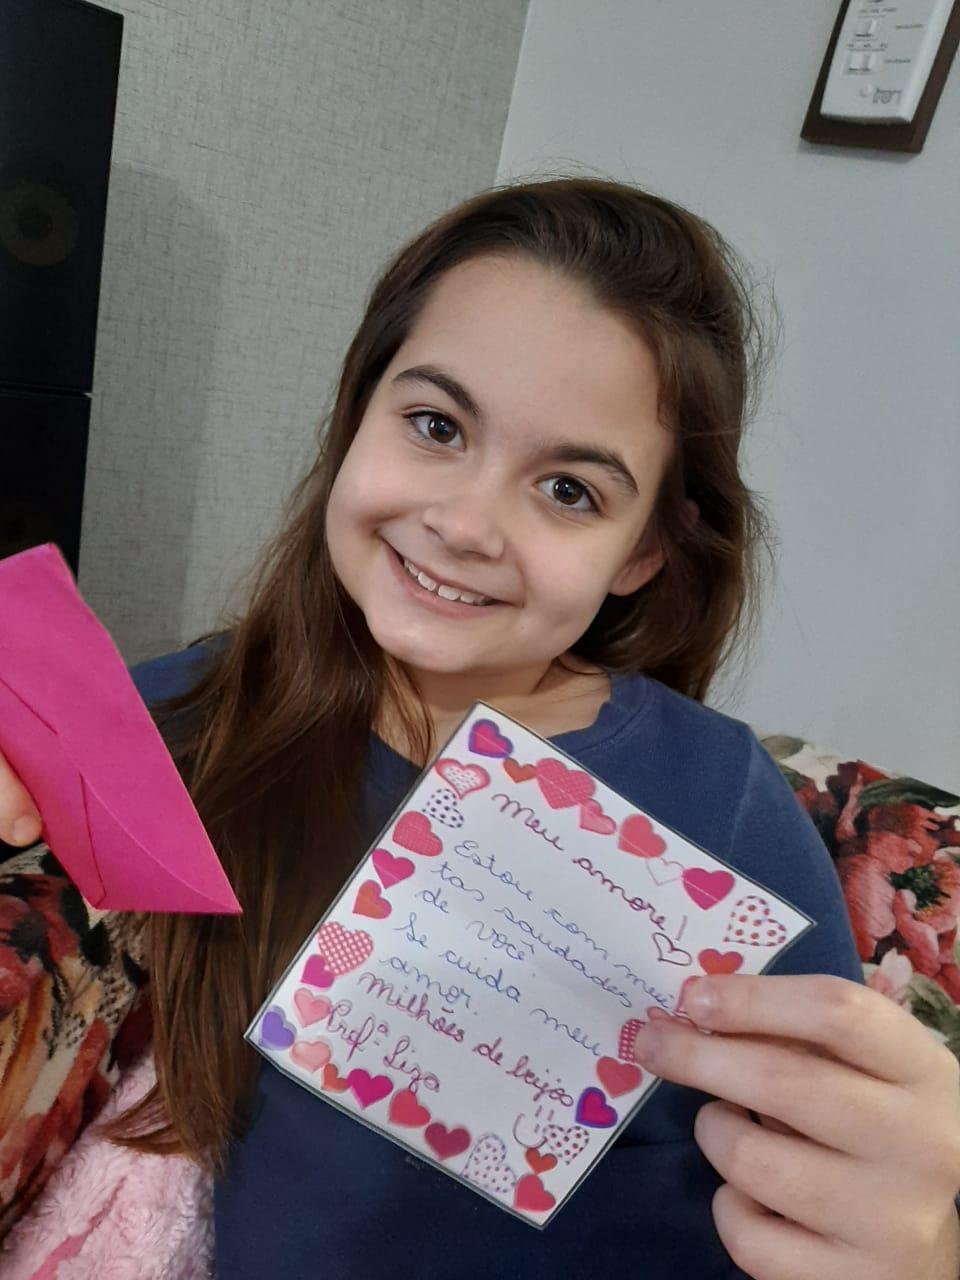 Meu amore!
Estou com mui
tas saudades
de você.
Se cuida meu
amor.
Milhões de beijos
Profª Liza